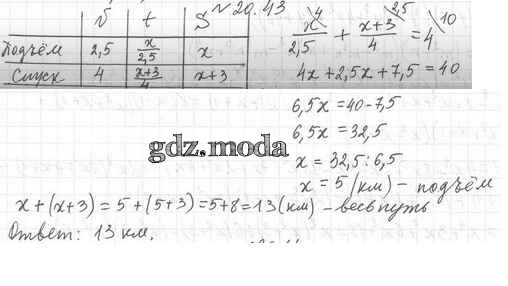 № 20.43
v t S
Подъём 2,5 x/2,5 x
Спуск 4 (x+3)/4 x+3
x\4/2,5 + (x+3)\2,5/4 = 4\10
4x+2,5x+7,5 = 40
6,5x = 40-7,5
6,5x = 32,5
x = 32,5 : 6,5
x = 5 (км) - подъём
gdz.moda
x+(x+3) = 5+(5+3) = 5+8 = 13 (км) - весь путь
Ответ: 13 км.